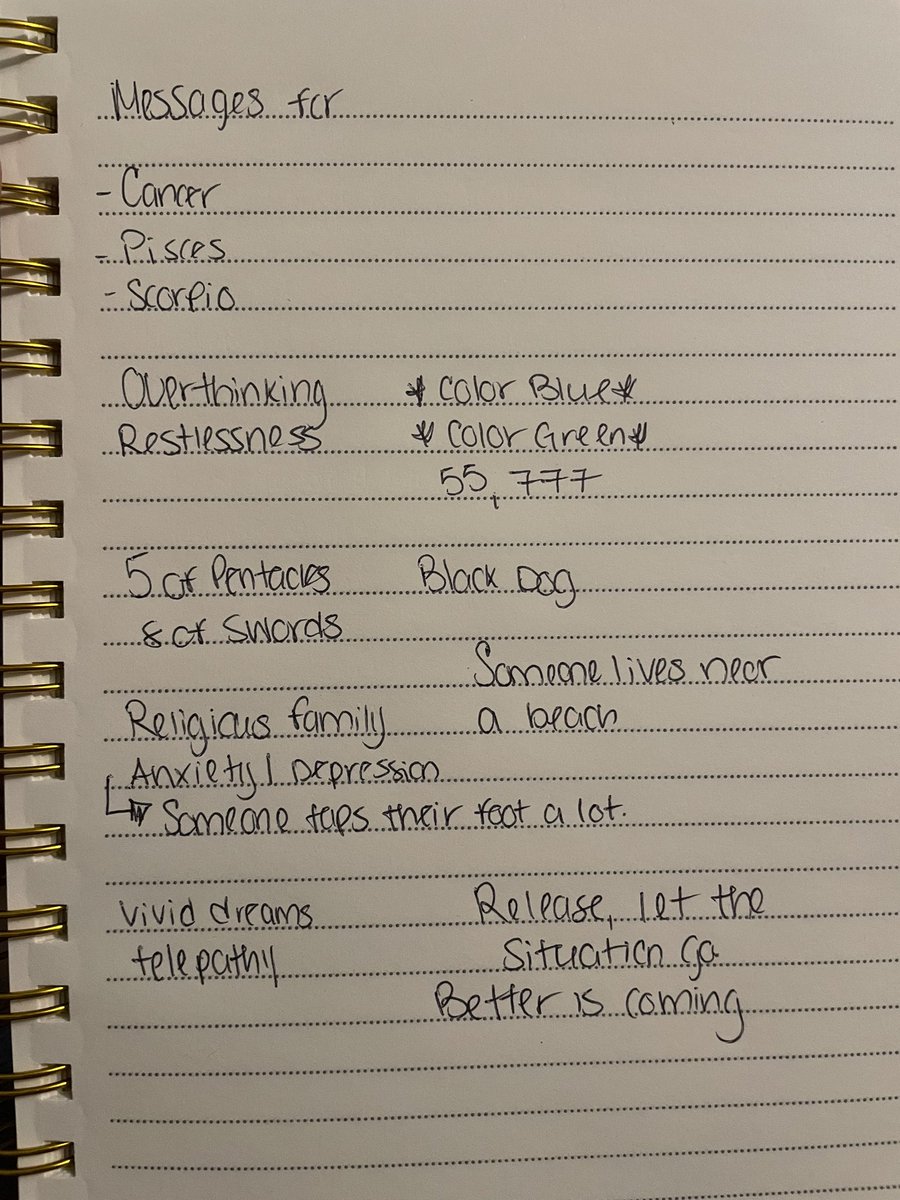 Messages for
- Cancer
- Pisces
- Scorpio
Overthinking * Color Blue *
Restlessness * Color Green *
55, 777
5 of Pentacles Black Dog
8 of Swords
Someone lives near
Religious family a beach
Anxiety | Depression
↳ Someone taps their foot a lot.
Vivid dreams Release, let the
telepathy Situation go
Better is coming